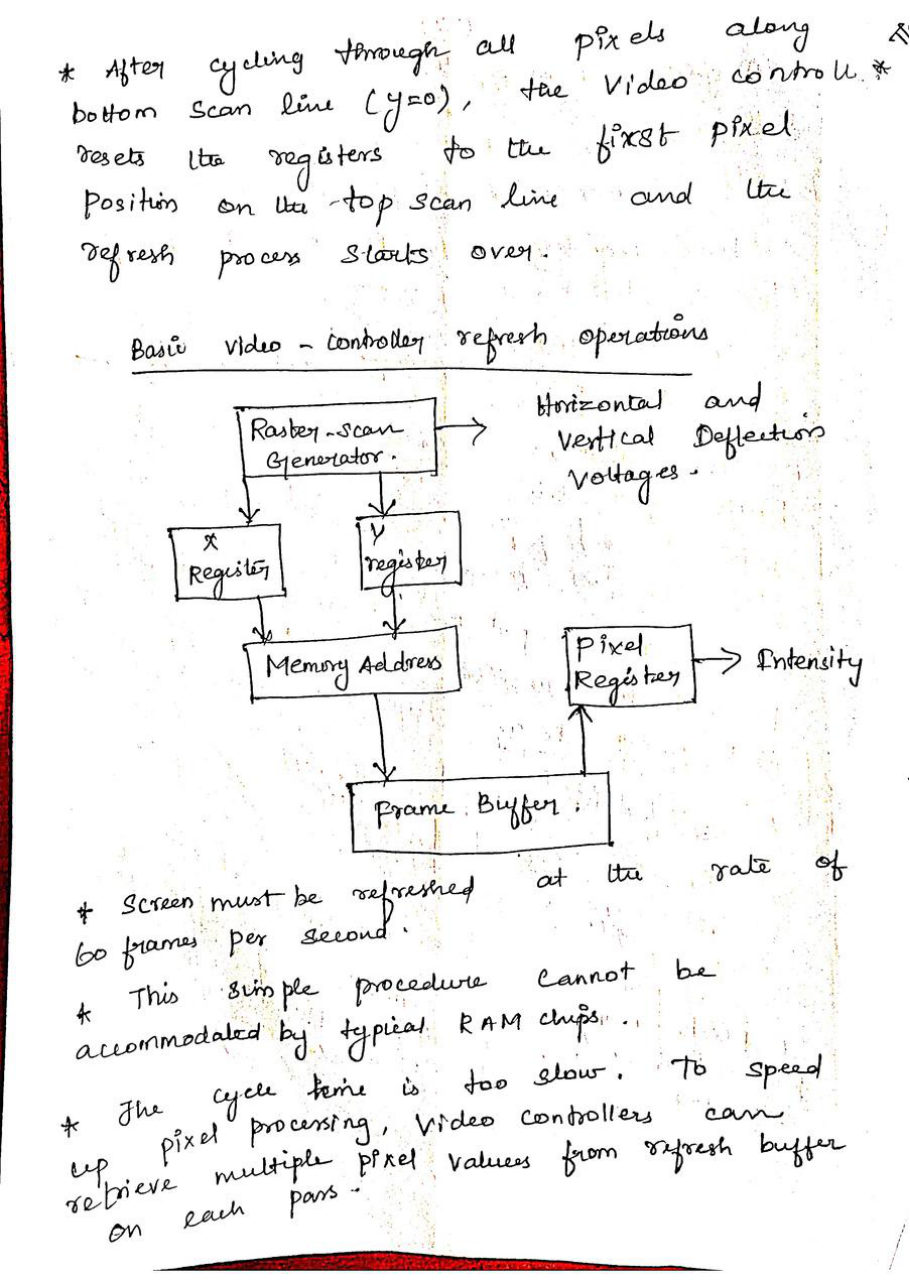 * After cycling through all pixels along
bottom scan line (y=0), the video controll *
resets the registers to the first pixel
position on the top scan line and the
refresh process starts over.
Basic video - controller refresh operations
Raster-scan
Generator.
Horizontal and
Vertical Deflection
Voltages.
X
Register
Y
register
Memory Address
Pixel
Register
Intensity
Frame Buffer.
* Screen must be refreshed at the rate of
60 frames per second.
* This simple procedure cannot be
accommodated by typical RAM chips.
* The cycle time is too slow. To speed
up pixel processing, video controllers can
retrieve multiple pixel values from refresh buffer
on each pass.